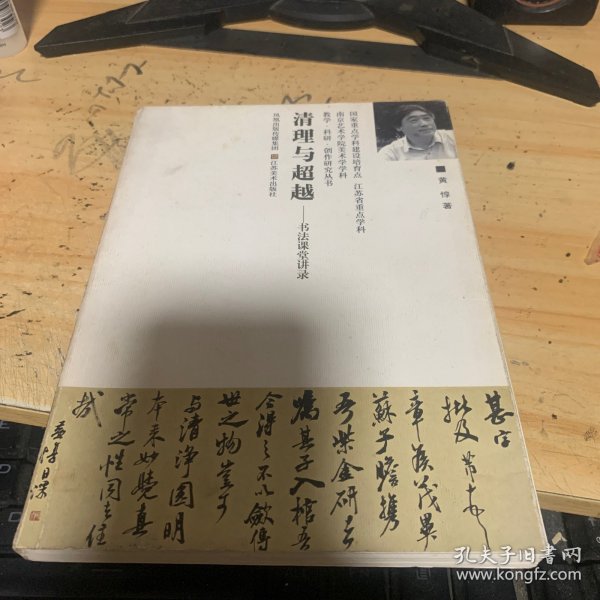 国家重点学科建设培育点 江苏省重点学科
南京艺术学院美术学学科
教学·科研·创作研究丛书
清理与超越
——书法课堂讲录
凤凰出版传媒集团 江苏美术出版社
■黄惇 著
甚字
批及
章侯茂异
苏子瞻携
吾紫金研去
嘱其子入棺吾
今得之不以敛传
世之物岂可
与清净圆明
本来妙觉真
常之性同去住
哉
黄惇日课
孔夫子旧书网
www.kongfz.com